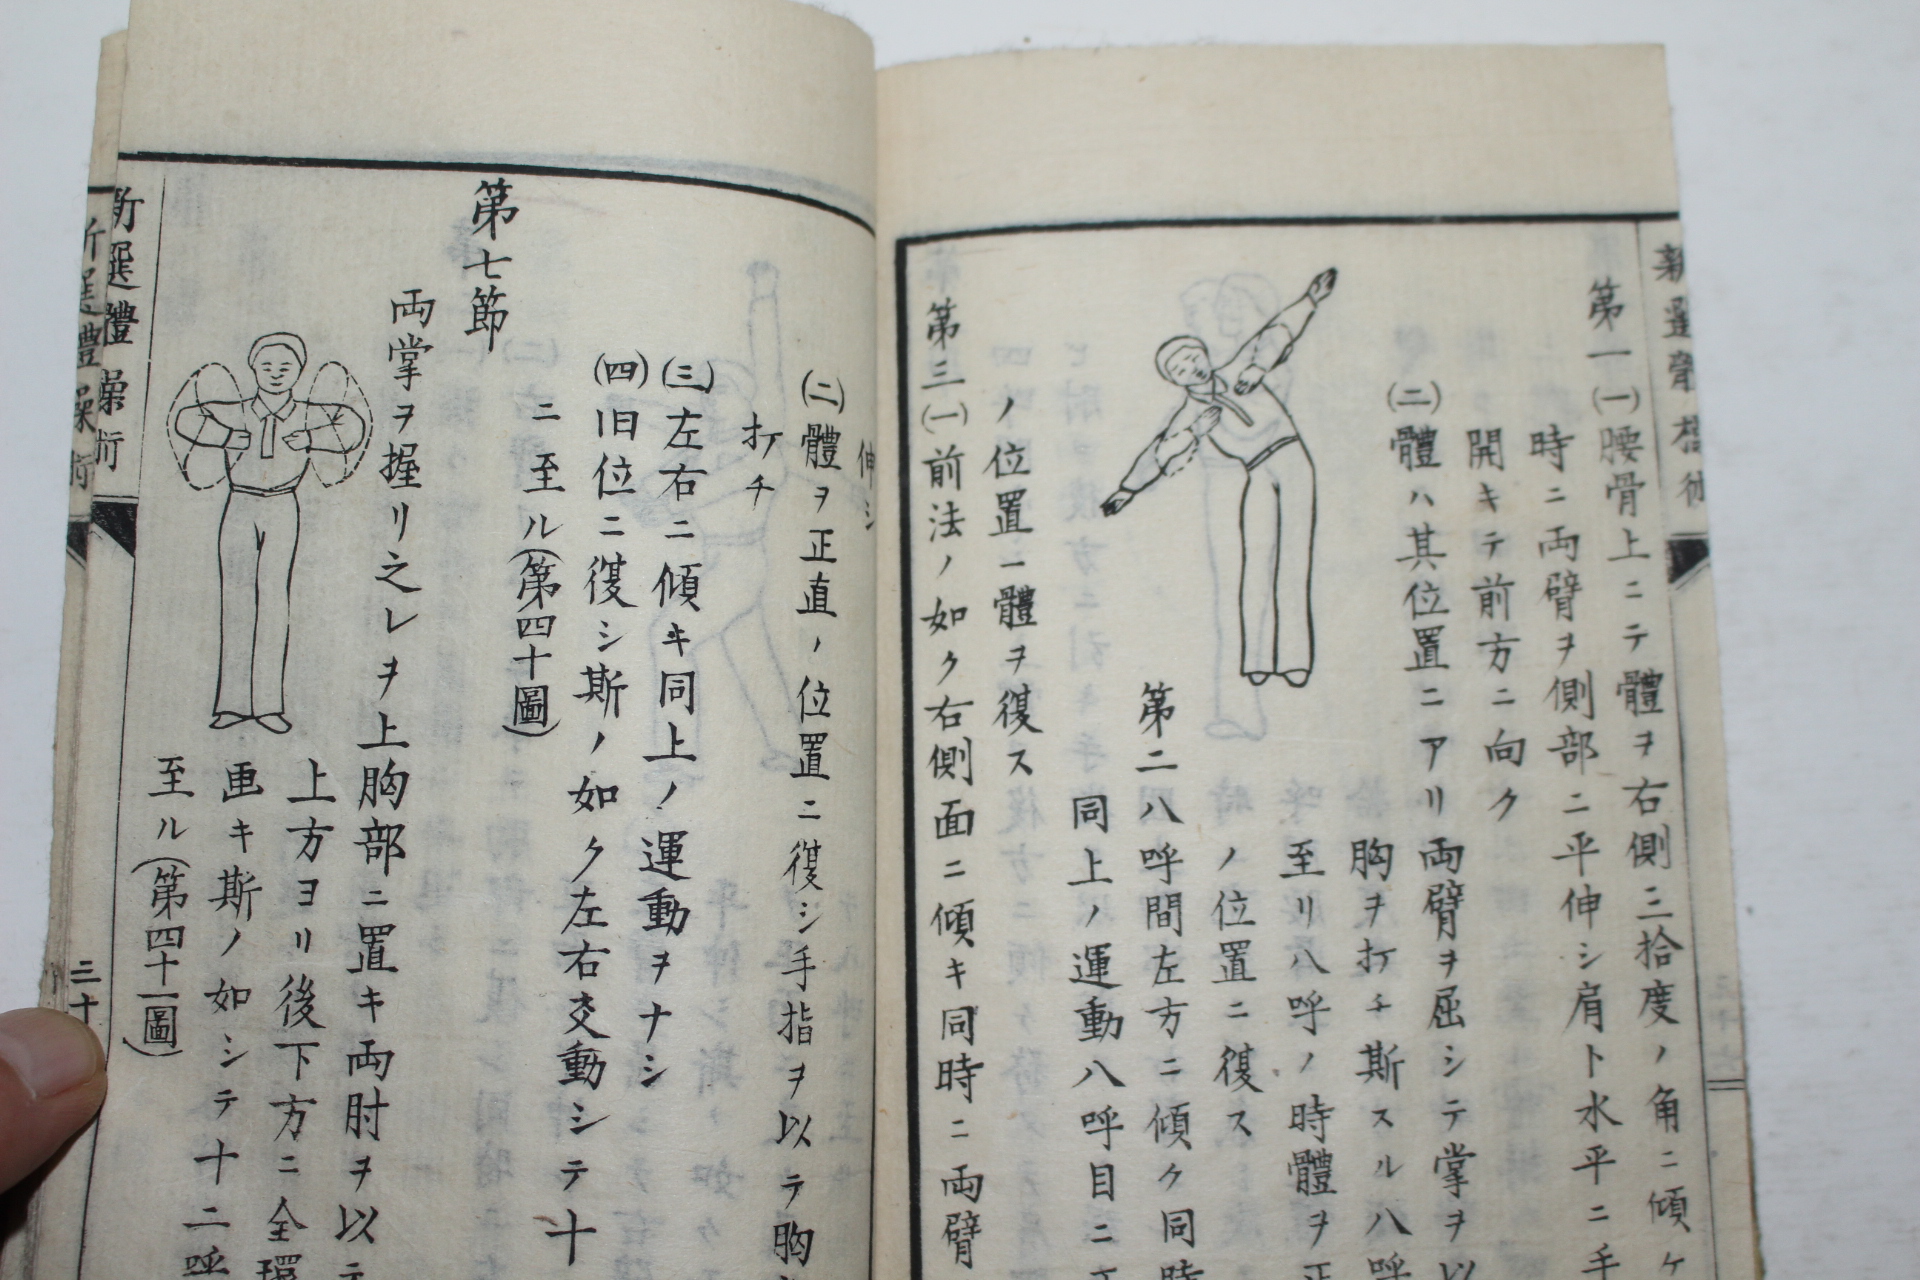 第一㈠腰骨上ニテ體ヲ右側三拾度ノ角ニ傾ケ
時ニ両臂ヲ側部ニ平伸シ肩ト水平ニ手
開キテ前方ニ向ク
㈡體ハ其位置ニアリ両臂ヲ屈シテ掌ヲ以
胸ヲ打チ斯スル八呼
至リ八呼ノ時體ヲ正
ノ位置ニ復ス
第二八呼間左方ニ傾ク同時
同上ノ運動八呼目ニ正
ノ位置ニ體ヲ復ス
第三㈠前法ノ如ク右側面ニ傾キ同時ニ両臂
伸シ
㈡體ヲ正直ノ位置ニ復シ手指ヲ以テ胸
打チ
㈢左右ニ傾キ同上ノ運動ヲナシ
㈣旧位ニ復シ斯ノ如ク左右交動シテ十
ニ至ル(第四十圖)
第七節
両掌ヲ握リ之レヲ上胸部ニ置キ両肘ヲ以テ
上方ヨリ後下方ニ全環
画キ斯ノ如シテ十二呼
至ル(第四十一圖)
新選體操術
三十
新選體操術